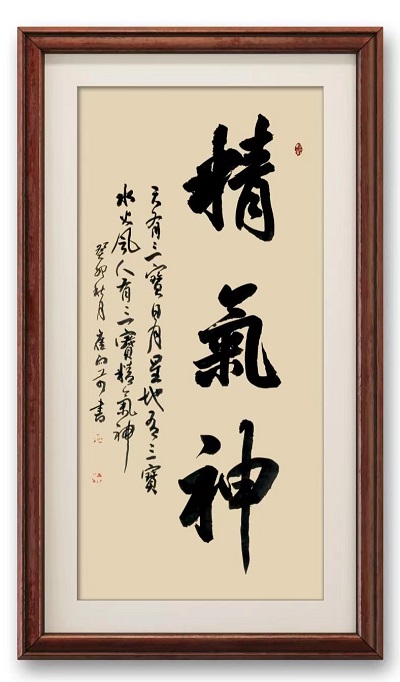 精氣神
天有三寶日月星地有三寶
水火風人有三寶精氣神
癸卯秋月 崔向 書